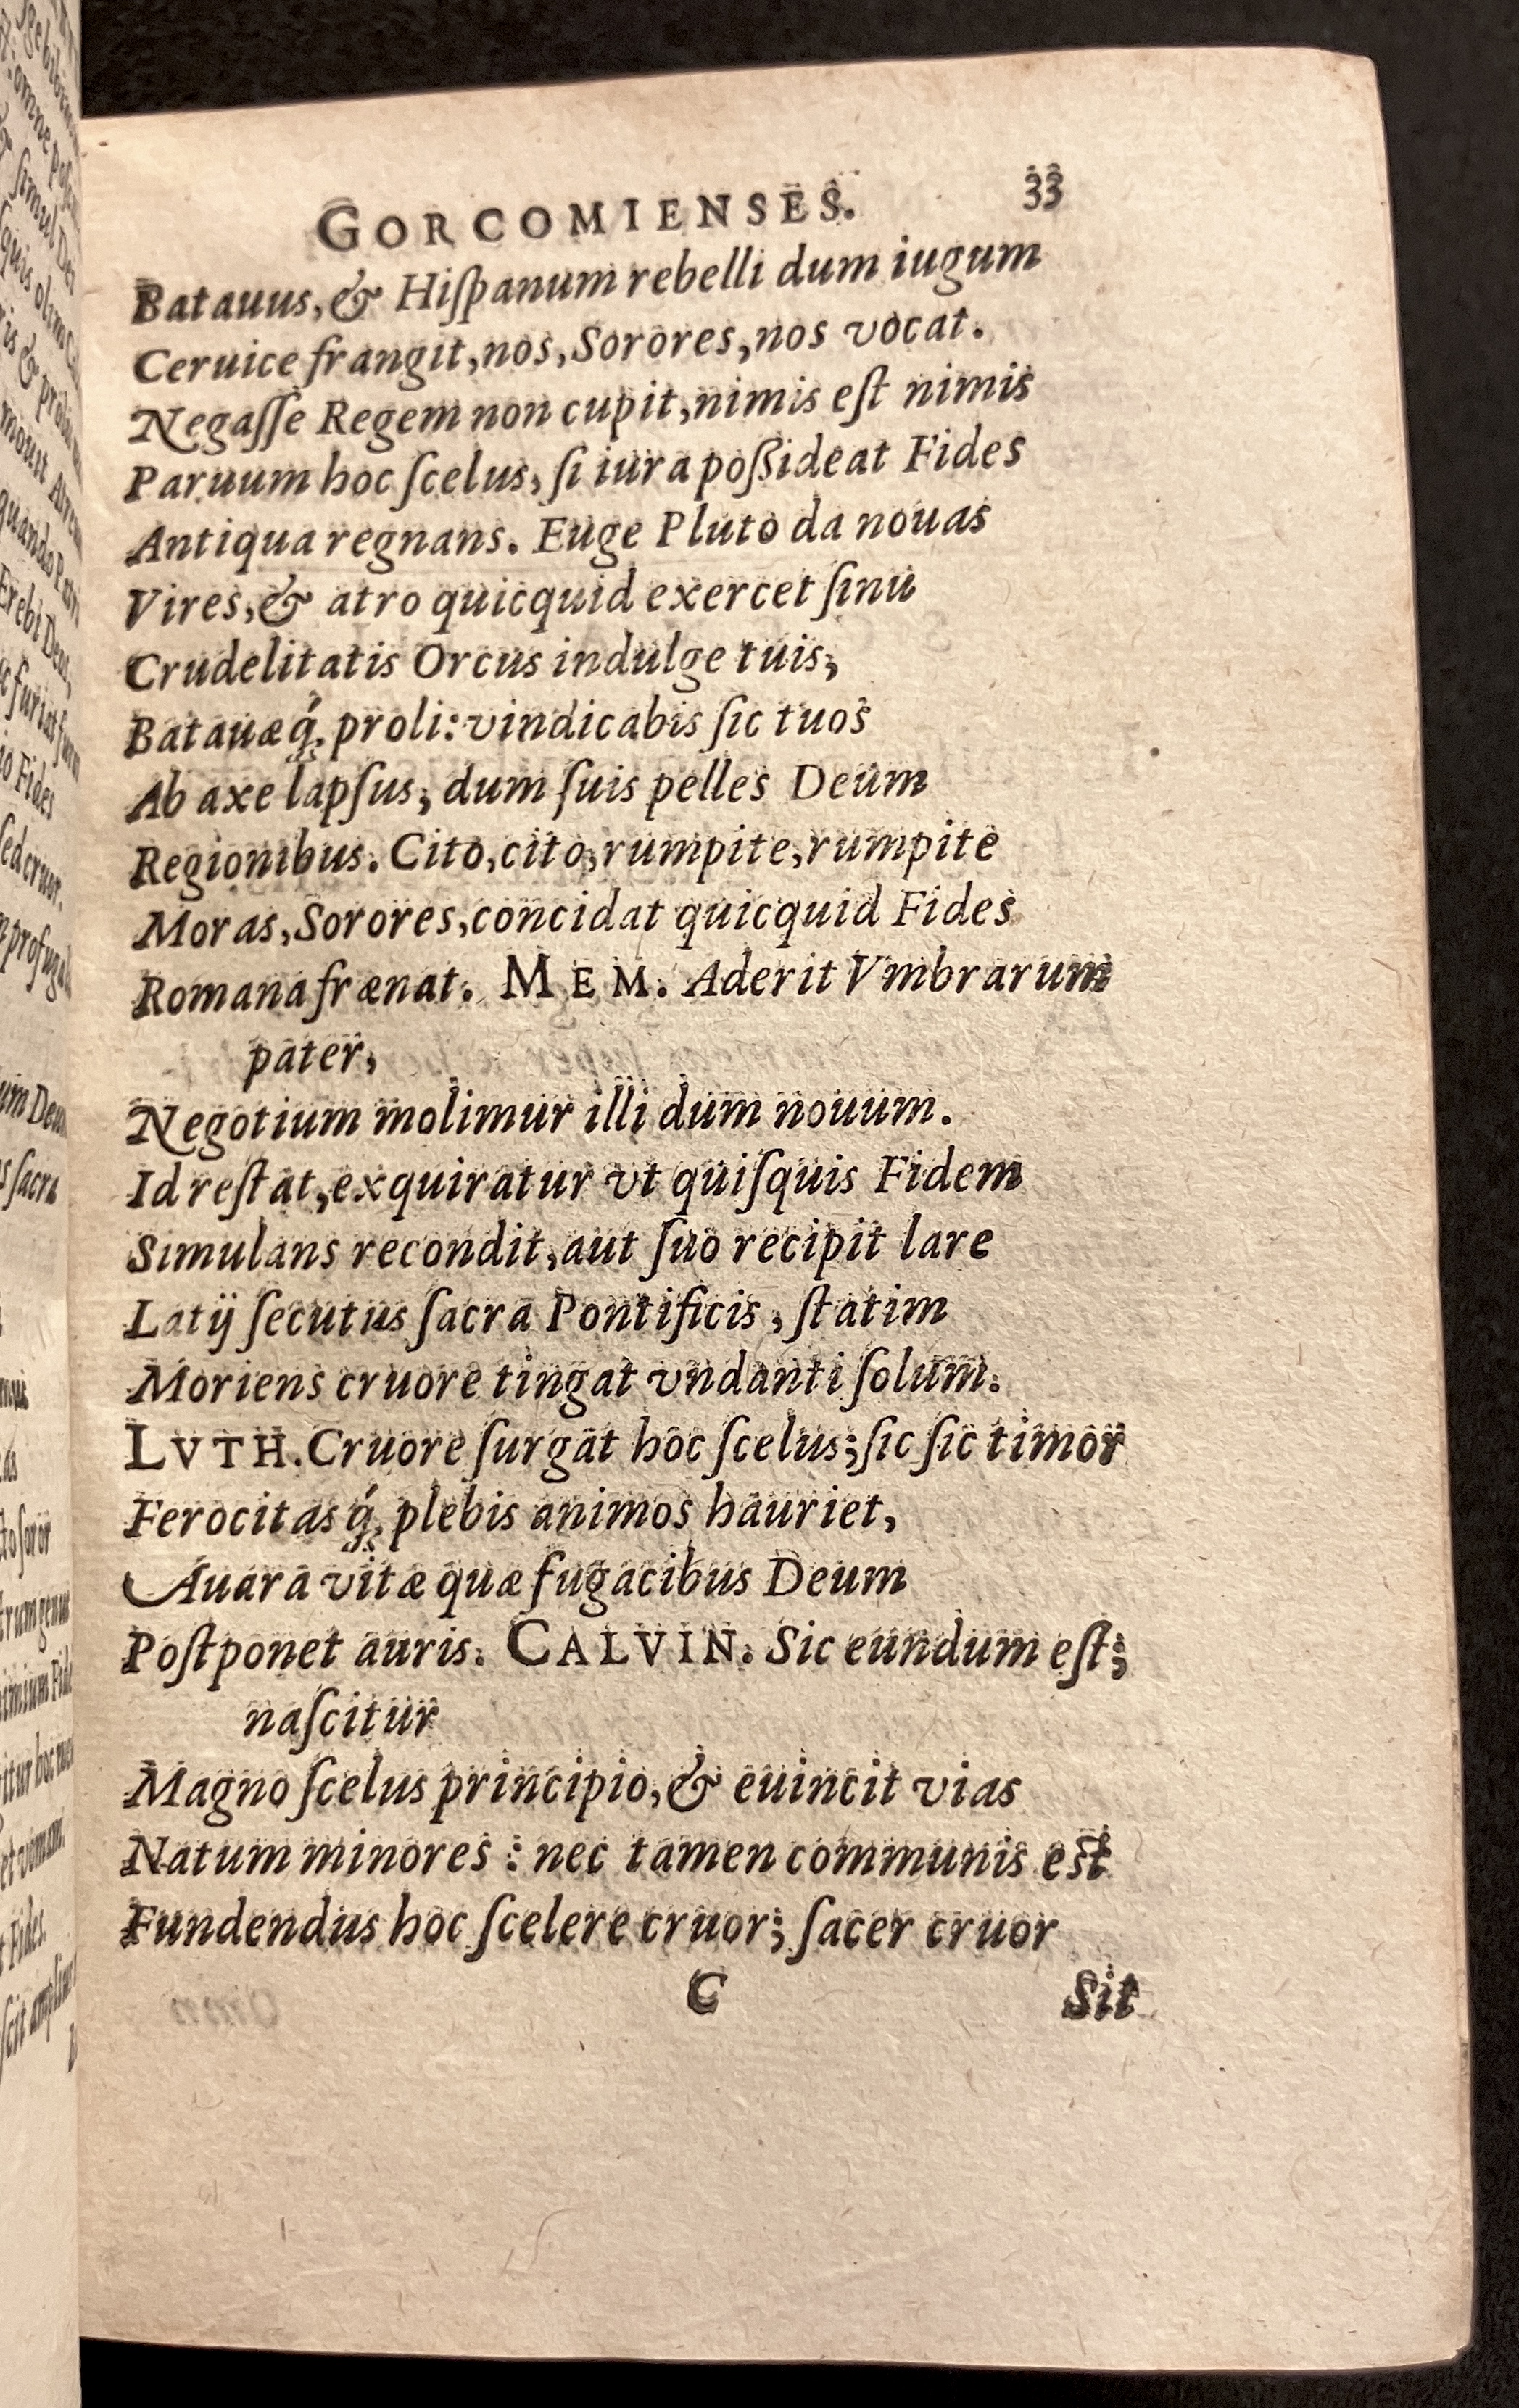 GORCOMIENSES. 33
Batauus, & Hiſpanum rebelli dum iugum
Ceruice frangit, nos, Sorores, nos vocat.
Negaſſe Regem non cupit, nimis eſt nimis
Paruum hoc ſcelus, ſi iura poßideat Fides
Antiqua regnans. Euge Pluto da nouas
Vires, & atro quicquid exercet ſinu
Crudelitatis Orcus indulge tuis,
Batauæq́; proli: vindicabis ſic tuos
Ab axe lapſus, dum ſuis pelles Deum
Regionibus. Cito, cito, rumpite, rumpite
Moras, Sorores, concidat quicquid Fides
Romana frænat. MEM. Aderit Vmbrarum
pater,
Negotium molimur illi dum nouum.
Id reſtat, exquiratur vt quiſquis Fidem
Simulans recondit, aut ſuo recipit lare
Latij ſecutus ſacra Pontificis, ſtatim
Moriens cruore tingat vndanti ſolum.
LVTH. Cruore ſurgat hoc ſcelus; ſic ſic timor
Ferocitasq́; plebis animos hauriet,
Auara vitæ quæ fugacibus Deum
Poſtponet auris. CALVIN. Sic eundum eſt;
naſcitur
Magno ſcelus principio, & euincit vias
Natum minores: nec tamen communis est
Fundendus hoc ſcelere cruor; ſacer cruor
C Sit